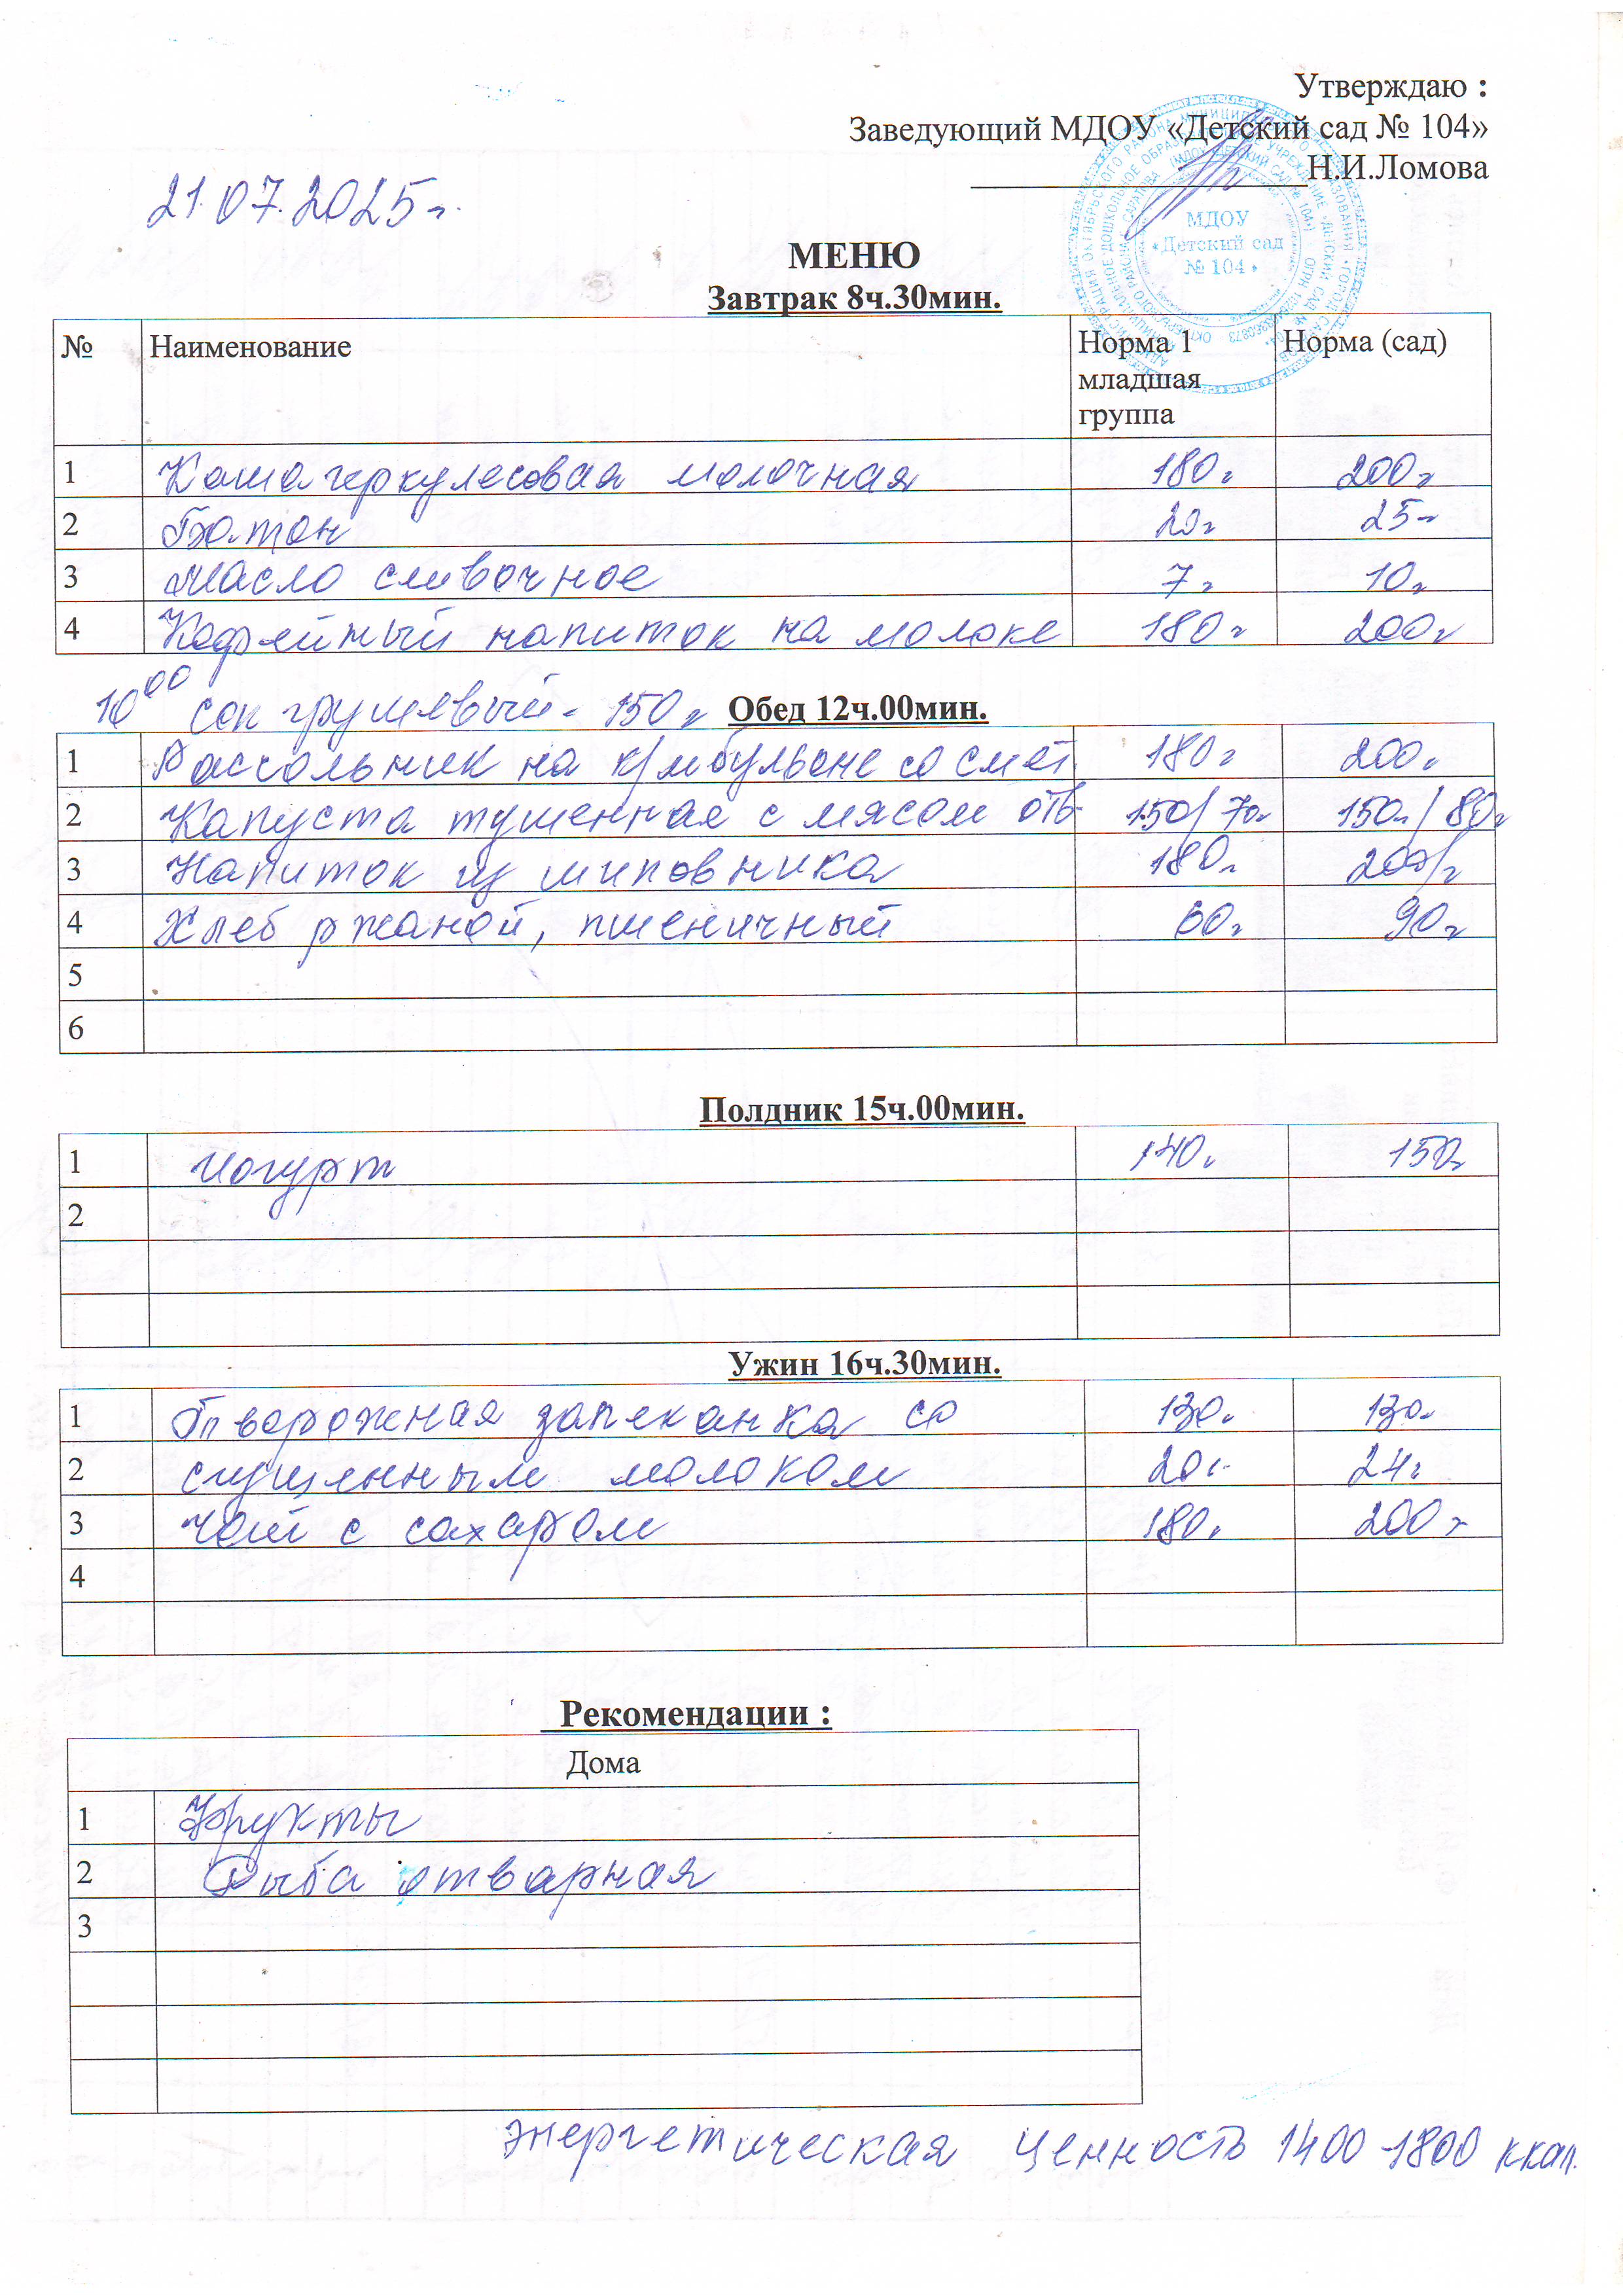 Утверждаю :
Заведующий МДОУ «Детский сад № 104»
Н.И.Ломова
21.07.2025г.
МДОУ
«Детский сад
№ 104»
МЕНЮ
Завтрак 8ч.30мин.
№ Наименование Норма 1 младшая группа Норма (сад)
1 Каша геркулесовая молочная 180г 200г
2 Батон 20г 25г
3 Масло сливочное 7г 10г
4 Кофейный напиток на молоке 180г 200г
10⁰⁰ сок грушевый - 150г
Обед 12ч.00мин.
1 Рассольник на к/мбульоне со смет. 180г 200г
2 Капуста тушенная с мясом отв. 150/70г 150г/80г
3 Напиток из шиповника 180г 200г
4 Хлеб ржаной, пшеничный 60г 90г
5
6
Полдник 15ч.00мин.
1 Йогурт 140г 150г
2
Ужин 16ч.30мин.
1 Творожная запеканка со 130г 130г
2 сгущенным молоком 20г 24г
3 Чай с сахаром 180г 200г
4
Рекомендации :
Дома
1 Фрукты
2 Рыба отварная
3
энергетическая ценность 1400-1800 ккал.